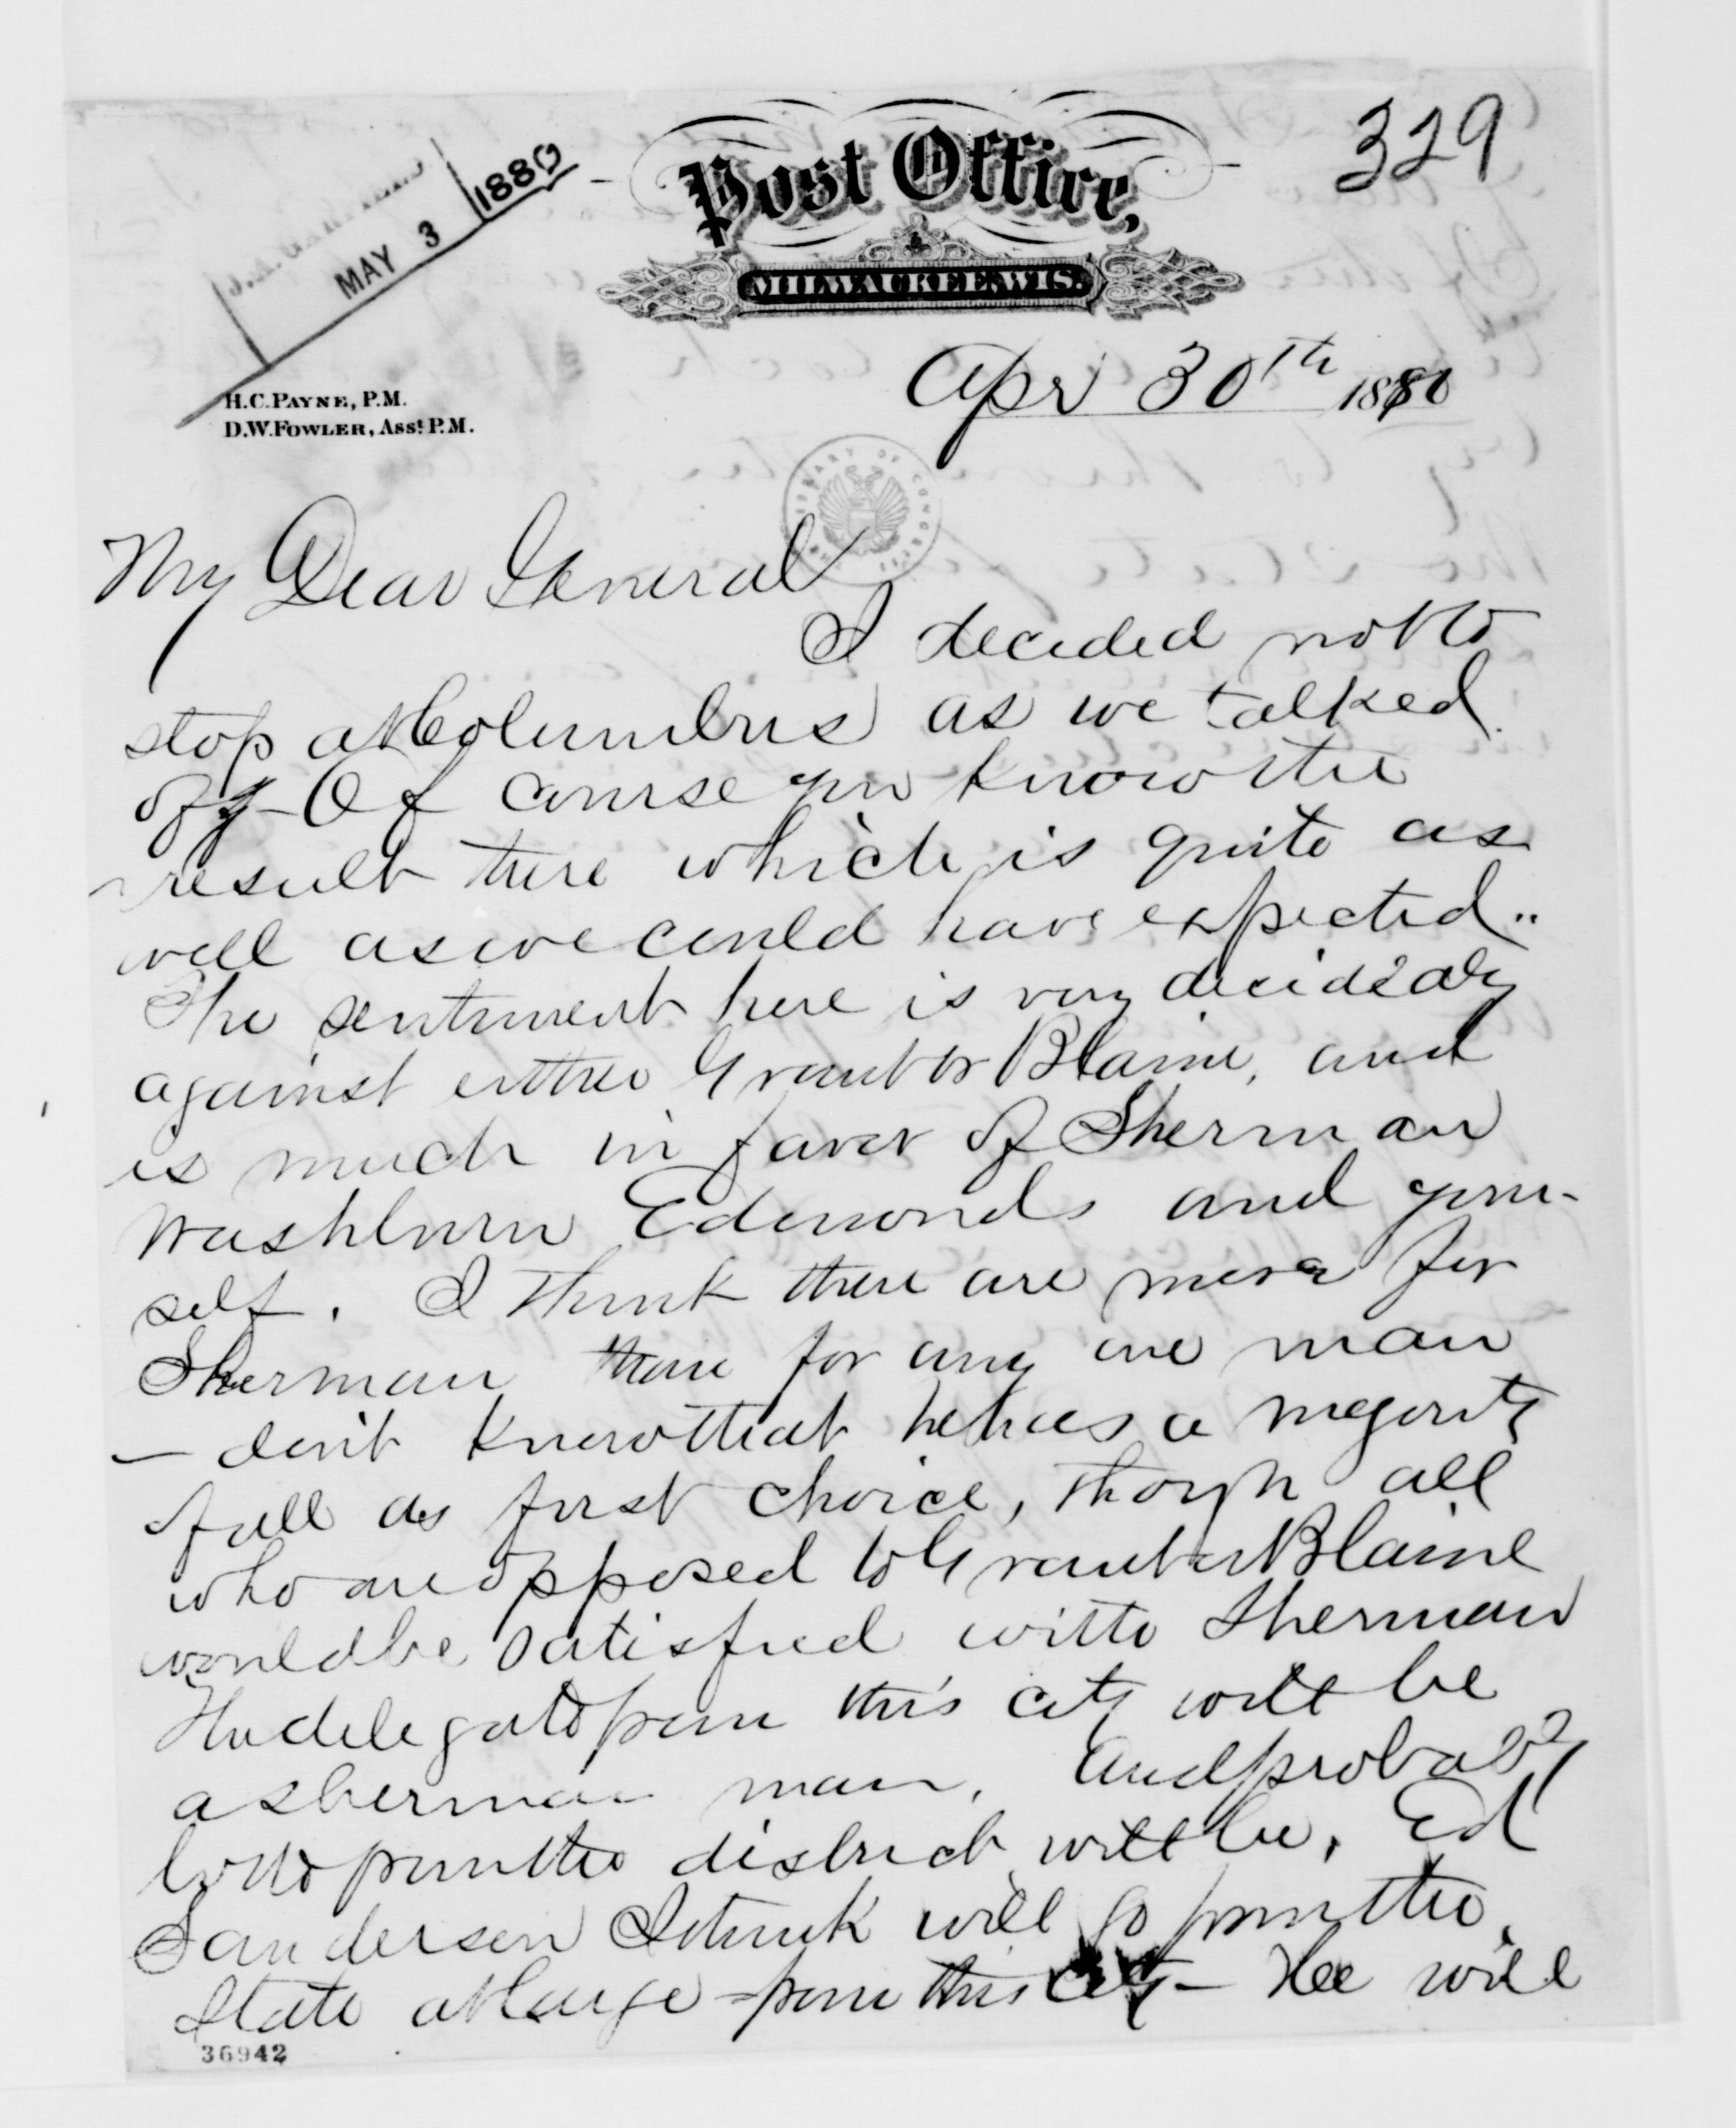 329
J.A. GARFIELD
MAY 3 1880
Post Office,
MILWAUKEE, WIS.
H.C. PAYNE, P.M.
D.W. FOWLER, Asst. P.M.
Apr 30th 1880
LIBRARY OF CONGRESS
My Dear General
I decided not to
stop at Columbus as we talked
of - Of course you know the
result there which is quite as
well as we could have expected..
The sentiment here is very decidedly
against either Grant or Blaine, and
is much in favor of Sherman
Washburn Edmonds and your-
self. I think there are more for
Sherman than for any one man
- don't know that he has a majority
of all as first choice, though all
who are opposed to Grant or Blaine
would be satisfied with Sherman
The delegate from this city will be
a Sherman man, and probably
both from the district will be, Ed
Sanderson I think will go from the
State at large - from this city - He will
36942